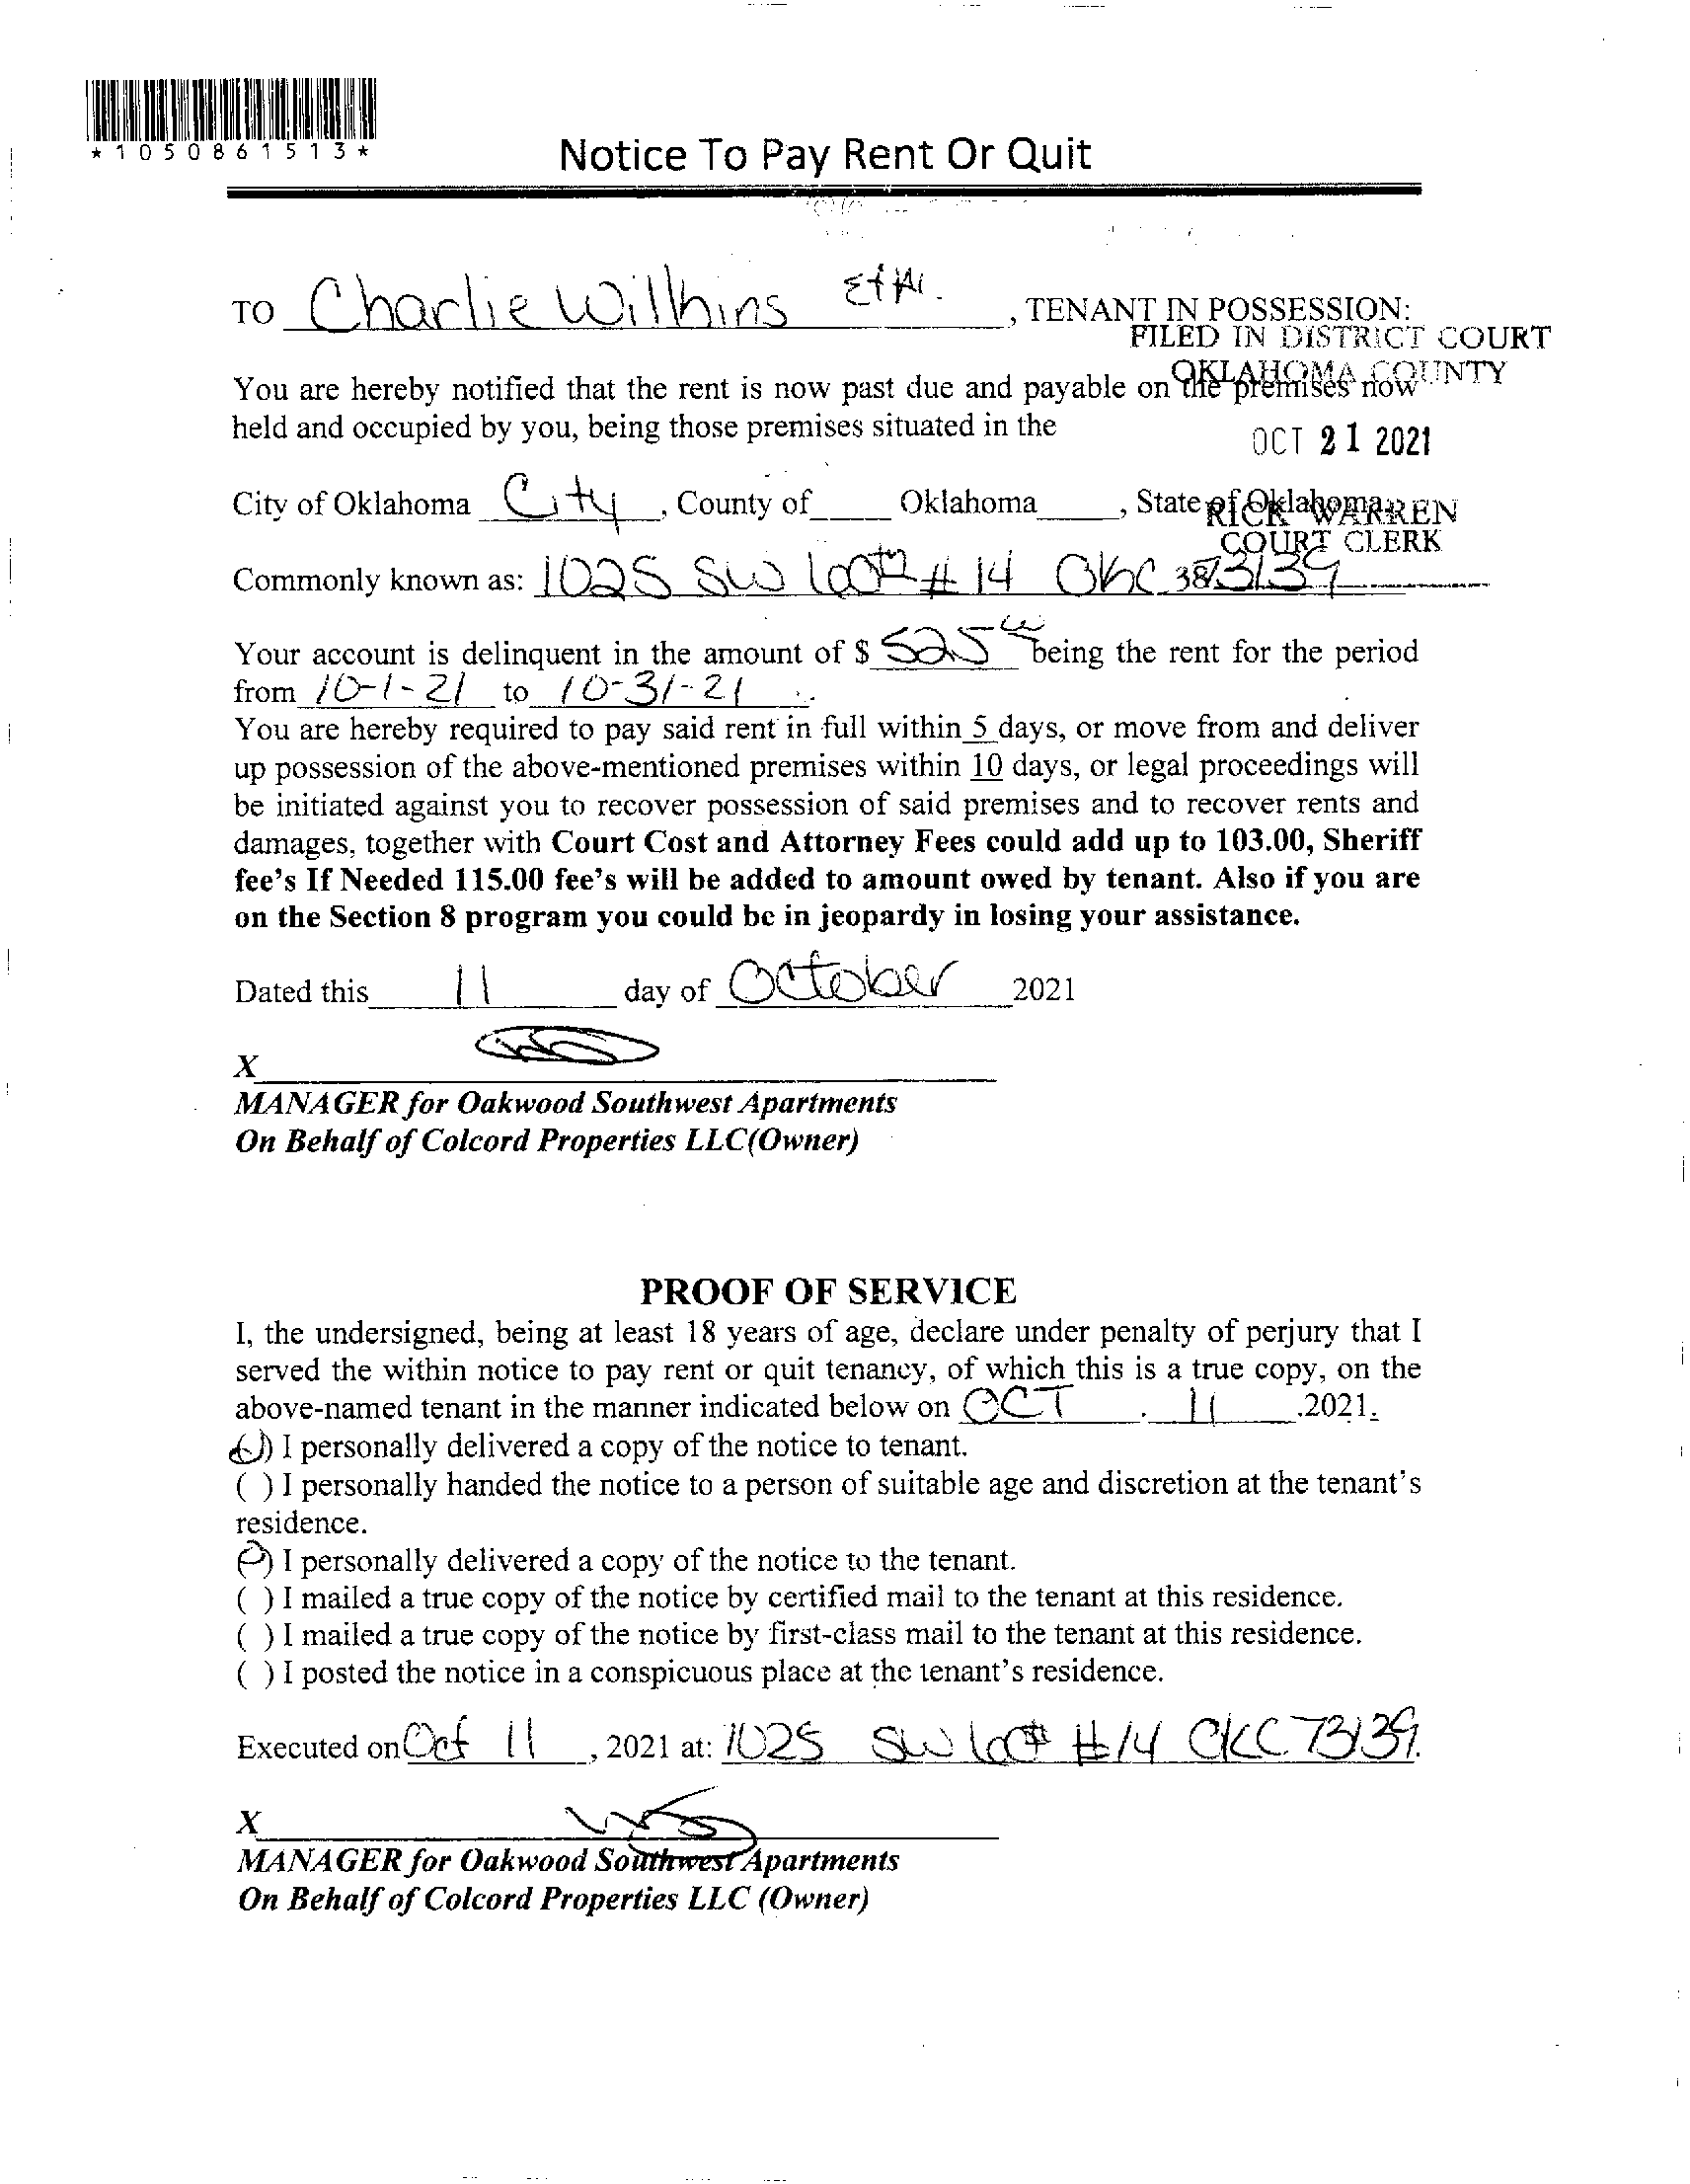 *1050861513*
Notice To Pay Rent Or Quit
TO Charlie Wilhins Et Al. , TENANT IN POSSESSION:
FILED IN DISTRICT COURT
OKLAHOMA COUNTY
You are hereby notified that the rent is now past due and payable on the premises now
held and occupied by you, being those premises situated in the
OCT 21 2021
City of Oklahoma City , County of Oklahoma , State of Oklahoma.
RICK WARREN
COURT CLERK
Commonly known as: 1025 SW 100th # 14 OKC 73139
38
Your account is delinquent in the amount of $ 525 being the rent for the period
from 10-1-21 to 10-31-21
You are hereby required to pay said rent in full within 5 days, or move from and deliver
up possession of the above-mentioned premises within 10 days, or legal proceedings will
be initiated against you to recover possession of said premises and to recover rents and
damages, together with Court Cost and Attorney Fees could add up to 103.00, Sheriff
fee's If Needed 115.00 fee's will be added to amount owed by tenant. Also if you are
on the Section 8 program you could be in jeopardy in losing your assistance.
Dated this 11 day of October 2021
X
MANAGER for Oakwood Southwest Apartments
On Behalf of Colcord Properties LLC(Owner)
PROOF OF SERVICE
I, the undersigned, being at least 18 years of age, declare under penalty of perjury that I
served the within notice to pay rent or quit tenancy, of which this is a true copy, on the
above-named tenant in the manner indicated below on OCT . 11 .2021.
( ) I personally delivered a copy of the notice to tenant.
( ) I personally handed the notice to a person of suitable age and discretion at the tenant's
residence.
( ) I personally delivered a copy of the notice to the tenant.
( ) I mailed a true copy of the notice by certified mail to the tenant at this residence.
( ) I mailed a true copy of the notice by first-class mail to the tenant at this residence.
( ) I posted the notice in a conspicuous place at the tenant's residence.
Executed on Oct 11 , 2021 at: 1025 SW 100th #14 OKC 73139.
X
MANAGER for Oakwood Southwest Apartments
On Behalf of Colcord Properties LLC (Owner)